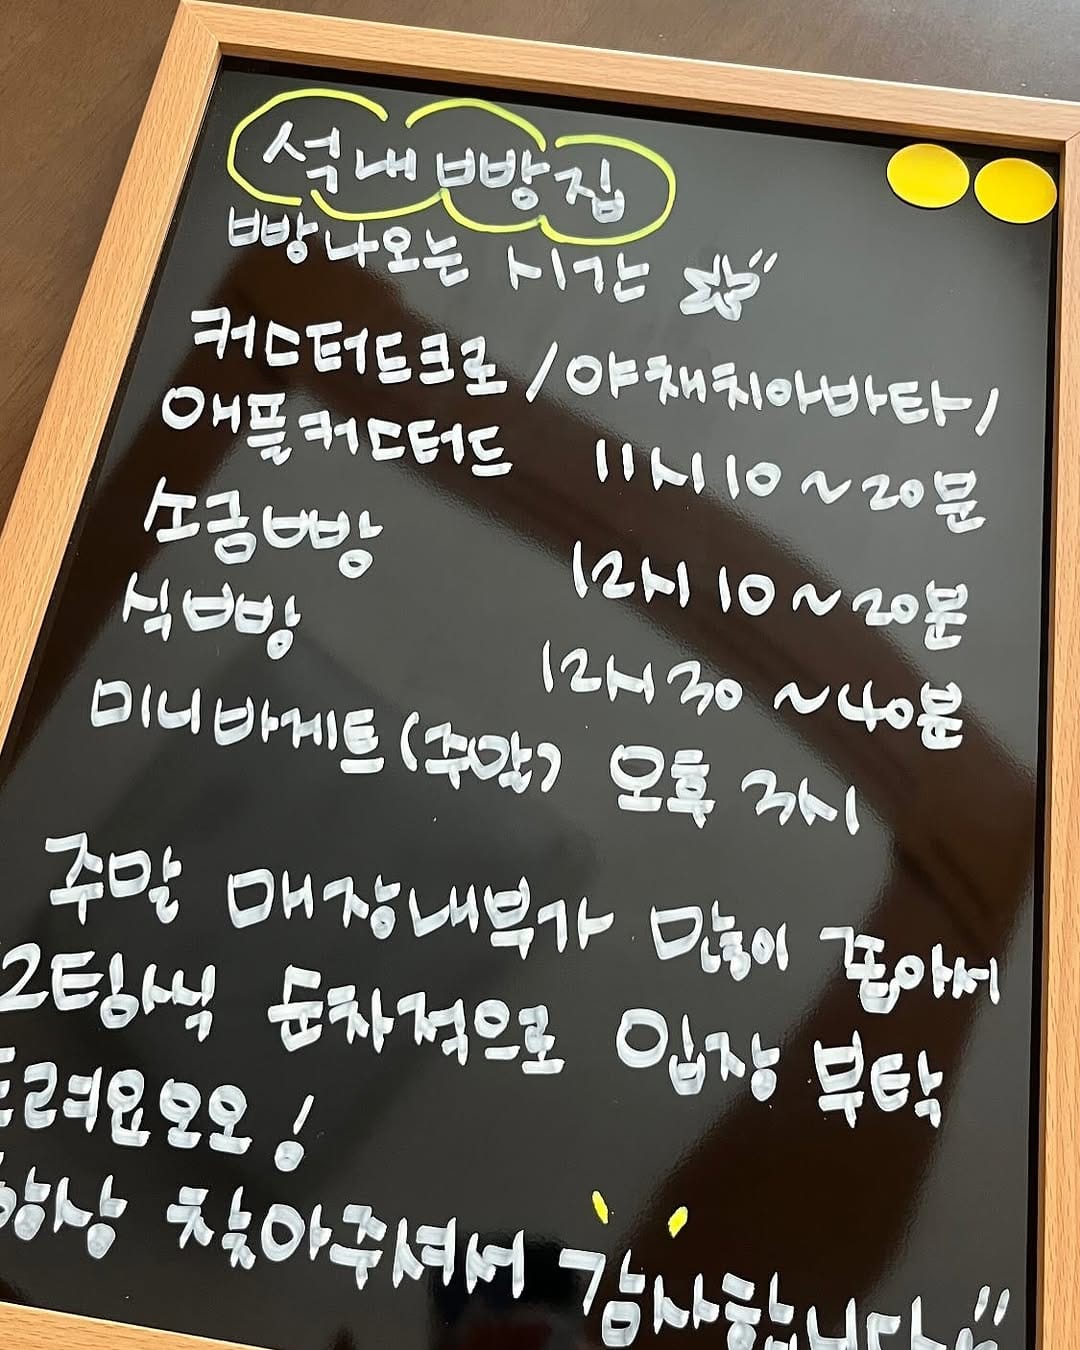 석내빵집
빵나오는 시간
커스터드크로/야채치아바타/
애플커스터드 11시10~20분
소금빵 12시10~20분
식빵 12시30~40분
미니바게트(주말) 오후 3시
주말 매장내부가 많이 좁아서
2팀씩 순차적으로 입장 부탁
드려요오오!
항상 찾아주셔서 감사합니다"